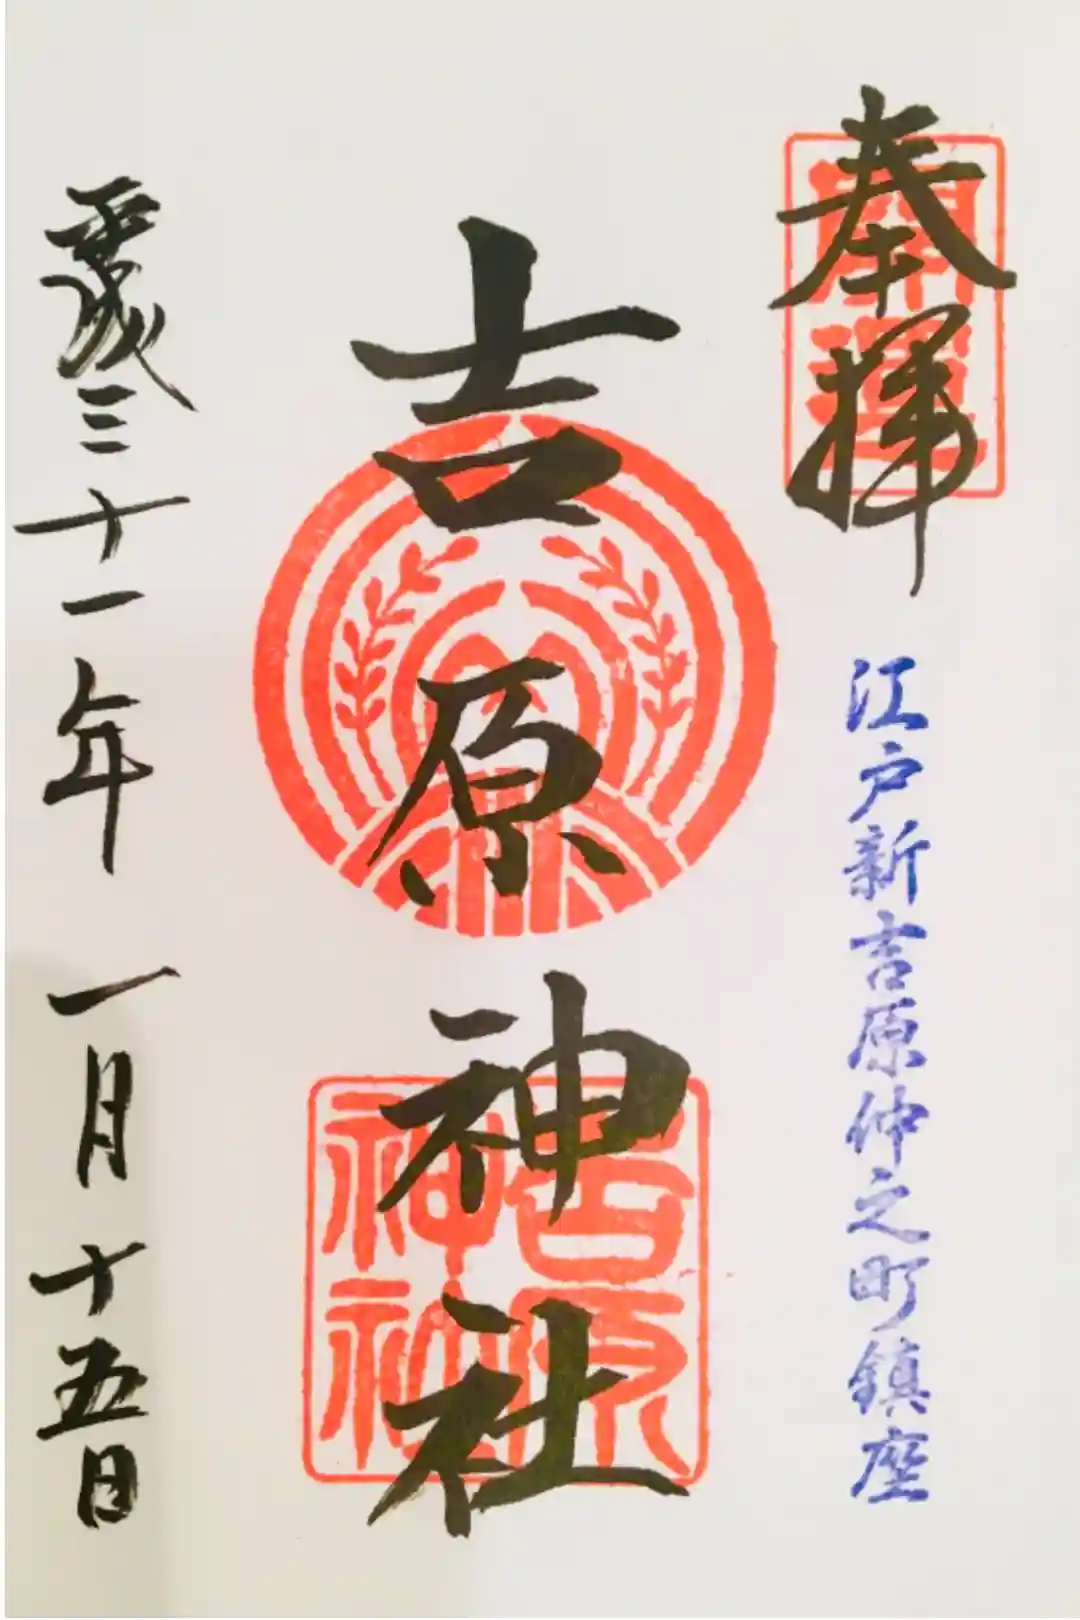 奉拝
開運
江戸新吉原仲之町鎮座
吉原神社
吉原
神社
平成三十一年一月十五日